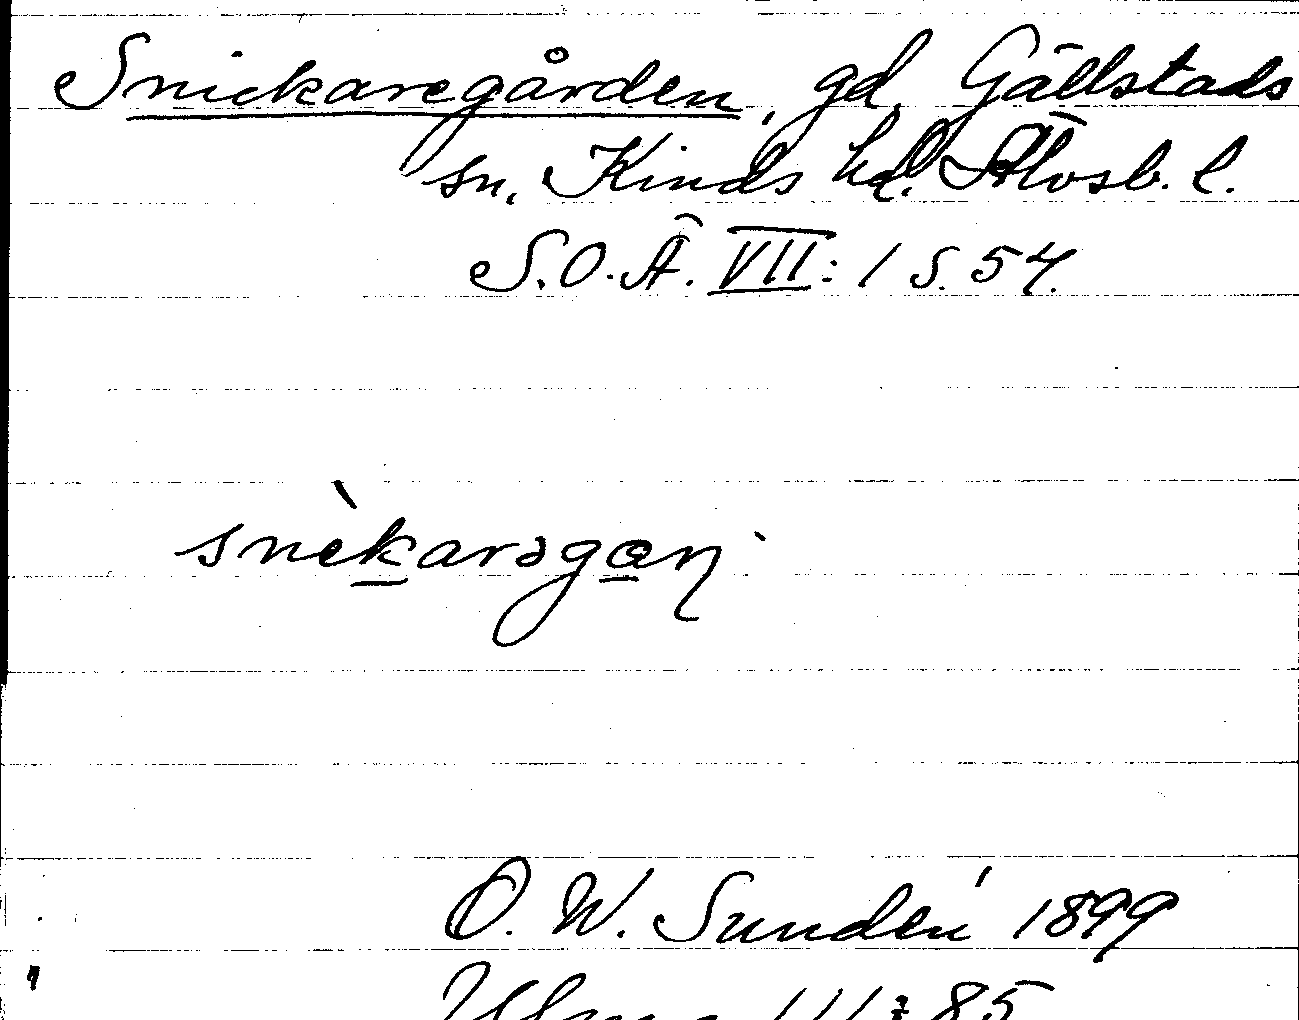 Snickaregården, gd, Gällstads
sn, Kinds hd. Älvsb. l.
S.O.Ä. VII: 1 S. 54.
snèkarəgan
D. W. Sundén 1899
111 : 85